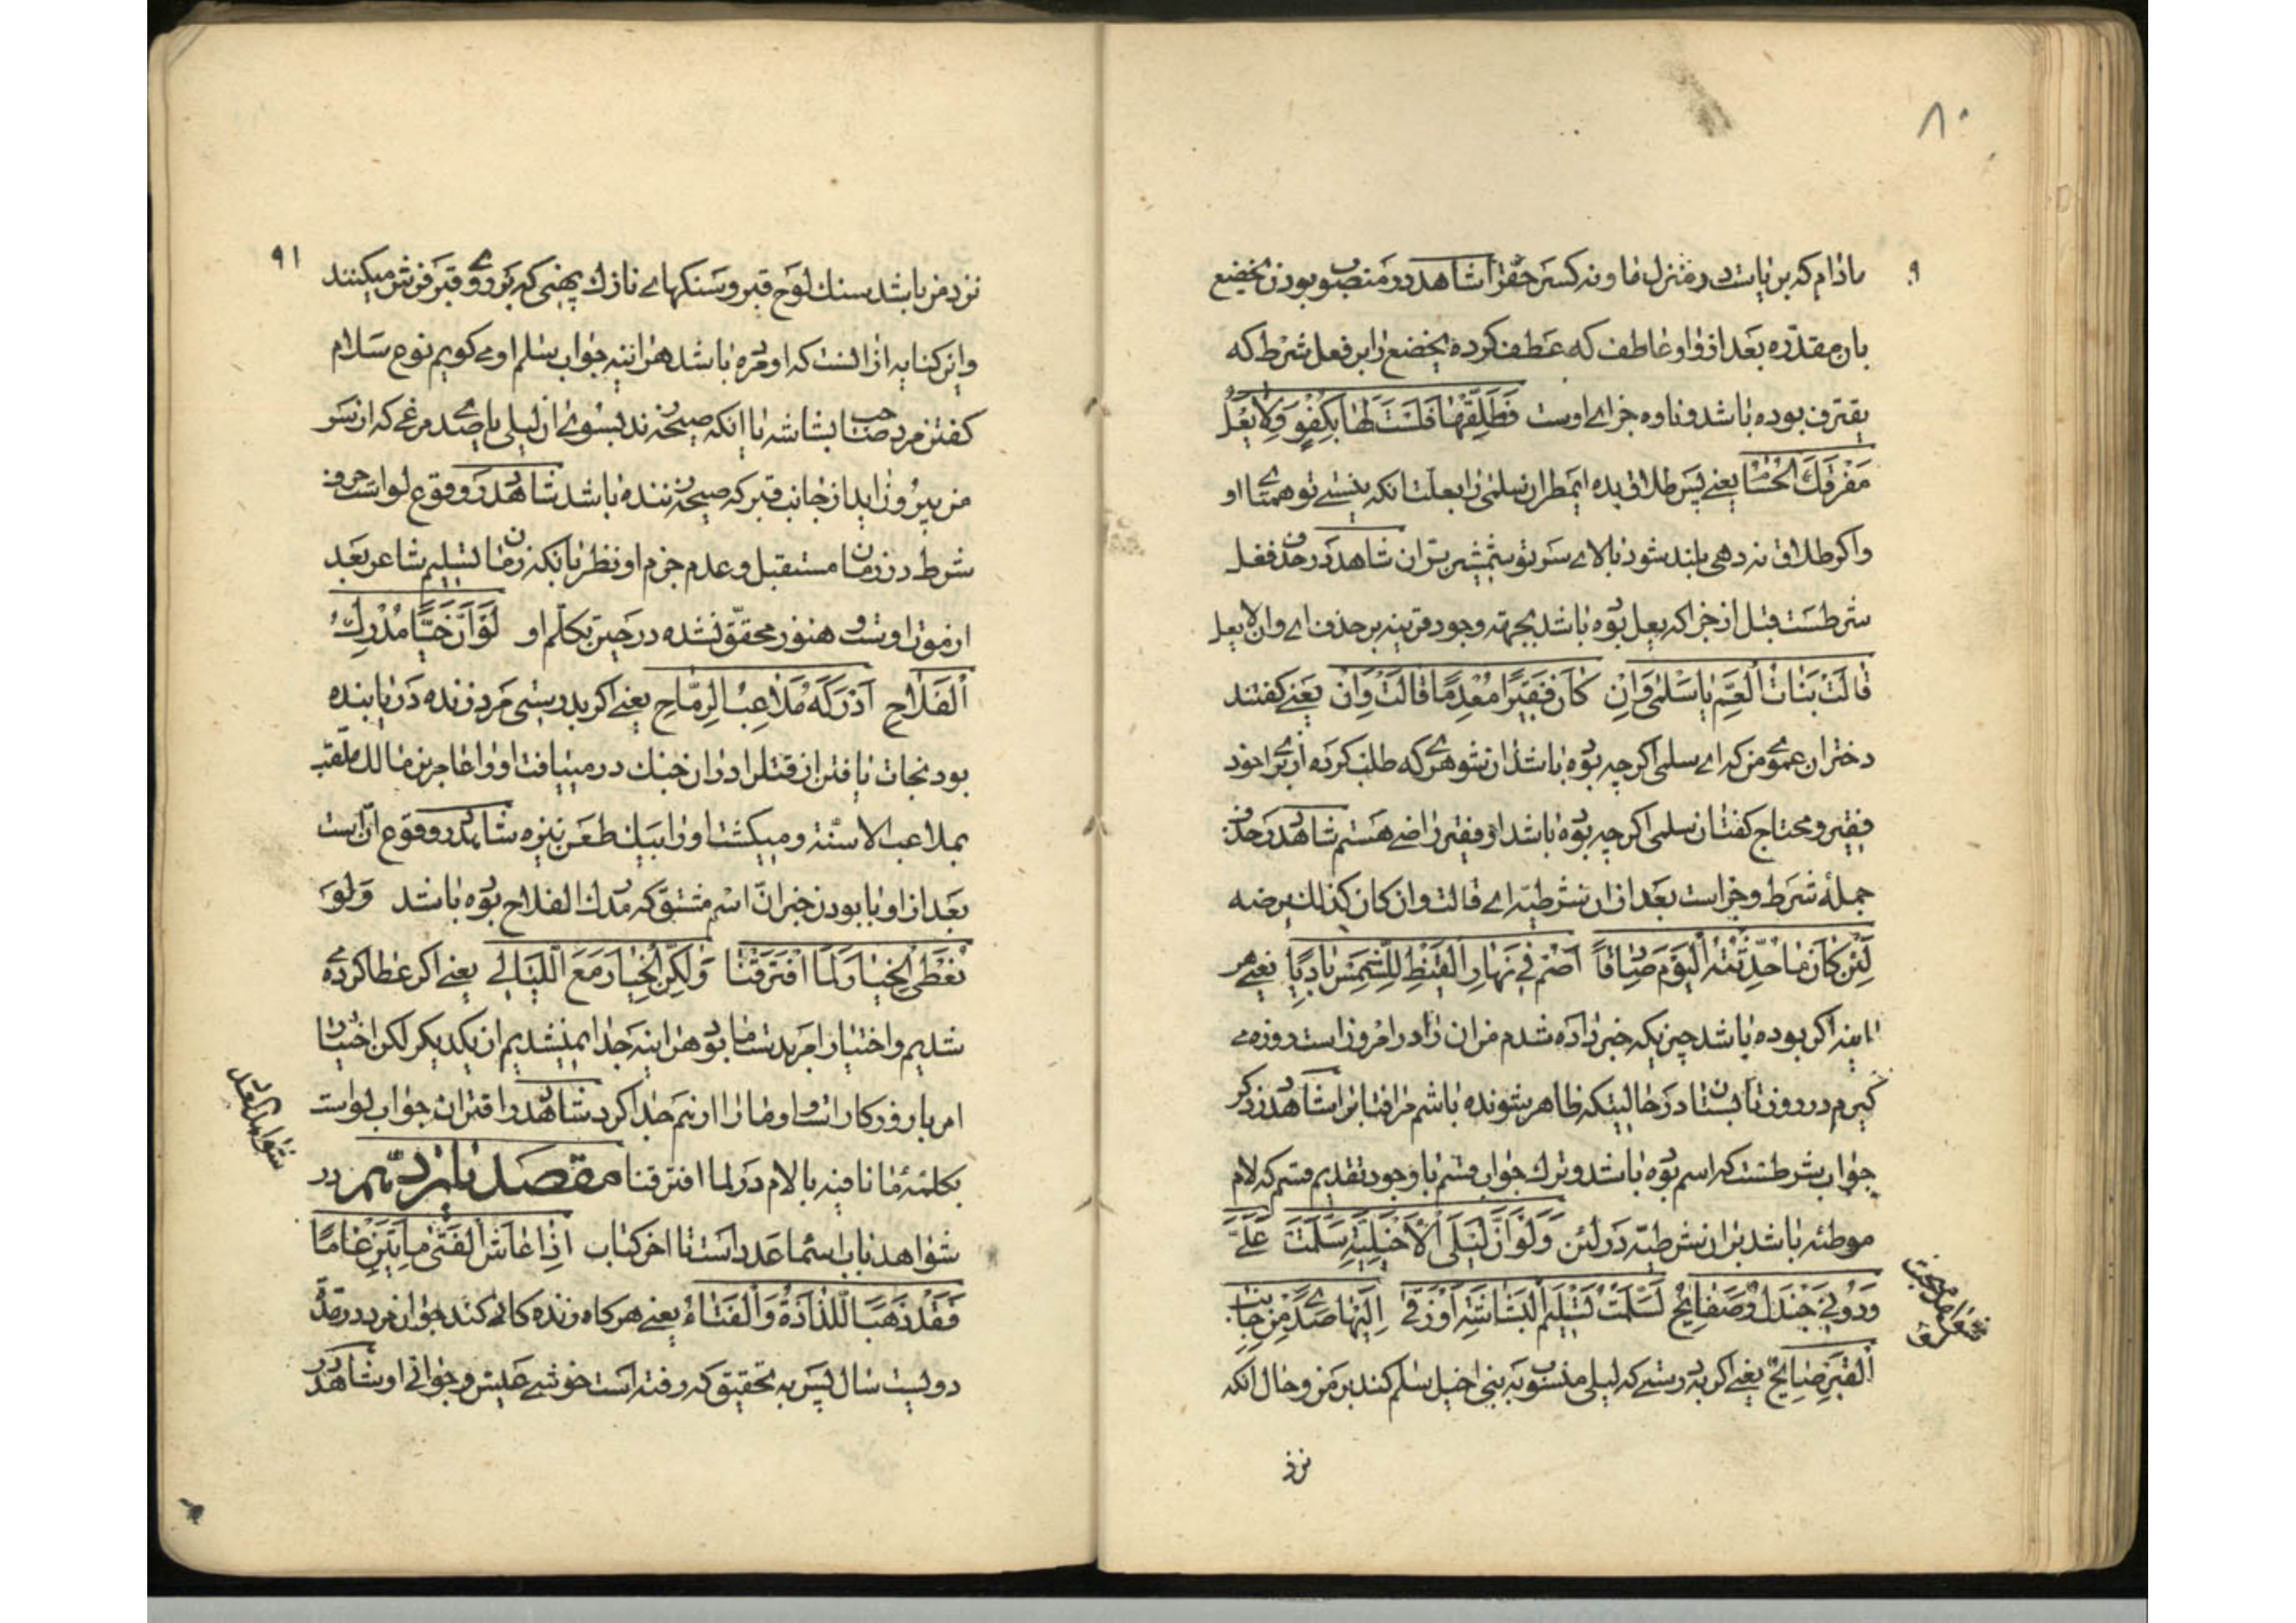 ۸۰
۹
مادام که برپاست در منزل ما و نه کسر حقرا شاهد در منصوب بودن یخضع
بان مقدره بعد از واو عاطفه که عطف کرده یخضع را بر فعل شرط که
یقترف بوده باشد و ناوه جزای اوست فَطَلِّقْهَا فَلَسْتَ لَهَا بِكُفْوٍ وَاِلَّا يَعْلُ
مَفْرِقَكَ الْحُسَامُ یعنی پس طلاق بده ایمطر ان سلمی را بعلت انکه نیستی تو همتای او
و اکر طلاق نه دهی بلند شود بالای سر تو شمشیر بران شاهد در حذف فعل
شرطست قبل از جزا که یعل بوده باشد بجهة وجود قرینه بر حذف ای وان لا یعل
قَالَتْ بَنَاتُ الْعَمِّ يَا سَلْمٰى وَاِنْ كَانَ فَقِيْرًا مُعْدِمًا قَالَتْ وَاِنْ یعنی کفتند
دختران عموی من که ای سلمی اکر چه بوده باشد ان شوهری که طلب کرده ای برای خود
فقیر و محتاج کفت ان سلمی اکر چه بوده باشد او فقیر راضی هستم شاهد در حذف
جملهٔ شرط و جزاست بعد از ان شرطیه ای قالت وان کان کذلک رضیه
لَئِنْ كَانَ مَا حُدِّثْتُهُ الْيَوْمَ صَادِقًا اَصُمْ فِي نَهَارِ الْقَيْظِ لِلشَّمْسِ بَادِيًا یعنی هر
اینه اکر بوده باشد چیزیکه خبر داده شدم من ان را در امروز راست روزه می
کیرم در روز تابستان در حالیتکه ظاهر شونده باشم مر افتابرا شاهد در ذکر
جواب شرطست که اسم بوده باشد و ترک جواب قسم با وجود تقدیم قسم که لام
موطئه باشد بر ان شرطیه در لئن وَلَوْ اَنَّ لَيْلَى الْاَخْيَلِيَّةَ سَلَّمَتْ عَلَيَّ
وَدُوْنِي جَنْدَلٌ وَصَفَايِحُ لَسَلَّمْتُ تَسْلِيْمَ الْبَشَاشَةِ اَوْ زَقٰى اِلَيْهَا صَدًى مِنْ جَانِبِ
الْقَبْرِ صَايِحُ یعنی اکر بدرستی که لیلی منسوب به بنی اخیل سلام کند بر من و حال انکه
نزد
۹۱
نزد من باشد سنک لوح قبر و سنکهای نازک پهنی که بر روی قبر فرش میکنند
و این کنایه از انست که او مرده باشد هر اینه جواب سلام او می کویم نوع سلام
کفتن مرد صاحب بشاشه یا انکه صیحه زند بسوی ان لیلی یا صدی مرغی که از سر
من بیرون اید از جانب قبر که صیحه زننده باشد شاهد در وقوع لو است حرف
شرط در زمان مستقبل و عدم جزم او نظر بانکه زمان تسلیم شاعر بعد
از موت اوست و هنوز محقق نشده در حین تکلم او لَوْ اَنَّ حَيًّا مُدْرِكُ
الْفَلَاحِ اَدْرَكَهُ مُلَاعِبُ الرِّمَاحِ یعنی اکر بدرستی مرد زنده دریابنده
بود نجات یافتن از قتل را در ان جنک در مییافت او را عامر بن مالک ملقب
بملاعب الاسنة و میکشت او را بیک طعن نیزه شاهد در وقوع ان است
بعد از لو با بودن خبر ان اسم مشتق که مدرک الفلاح بوده باشد وَلَوْ
نُعْطَى الْخِيَارَ لَمَا افْتَرَقْنَا وَلٰكِنْ لَا خِيَارَ مَعَ اللَّيَالِي یعنی اکر عطا کرده می
شدیم و اختیار امر بدست ما بود هر اینه جدا نمیشدیم از یکدیکر لکن اختیار
امر با روزکار است و او ما را از هم جدا کرد شاهد در اقتران جواب لو است
بکلمهٔ ما نافیه با لام در لما افترقنا مقصد یازدهم در
شواهد باب اسماء عدد است تا اخر کتاب اِذَا عَاشَ الْفَتٰى مِأَتَيْنِ عَامًا
فَقَدْ ذَهَبَ اللَّذَاذَةُ وَالْفَتَاءُ یعنی هر کاه زنده کانی کند جوان مرد در مدت
دویست سال پس به تحقیق که رفته است خوشی عیش و جوانی او شاهد در